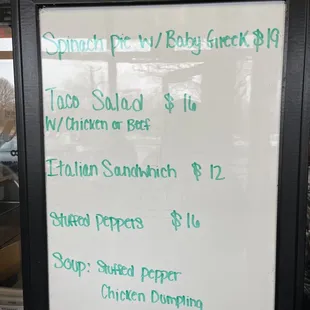 Spinach Pie W/ Baby Greek $19
Taco Salad $16
W/Chicken or Beef
Italian Sandwhich $12
Stuffed Peppers $16
Soup: Stuffed Pepper
Chicken Dumpling